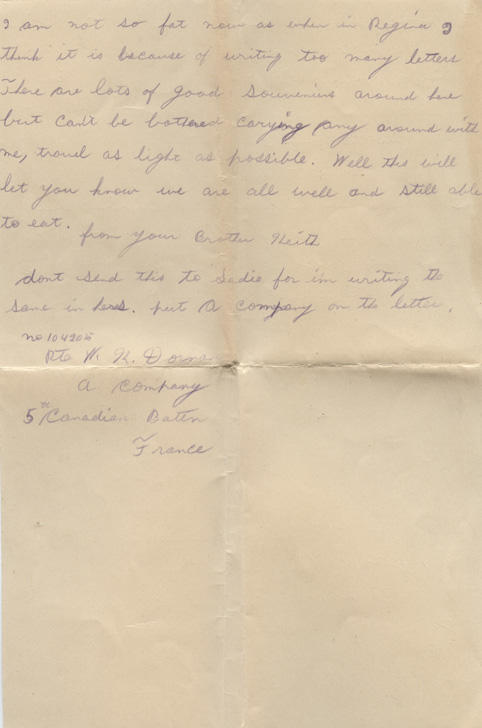 I am not so fat now as when in Regina I
think it is because of writing too many letters
There are lots of good souvenirs around here
but can't be bothered carying any around with
me, travel as light as possible. Well this will
let you know we are all well and still able
to eat.
from your Brother Keith
dont send this to Sadie for i'm writing the
same in hers. put A company on the letter.
no 104205
Pte W. K.
A Company
5th Canadian Baten
France